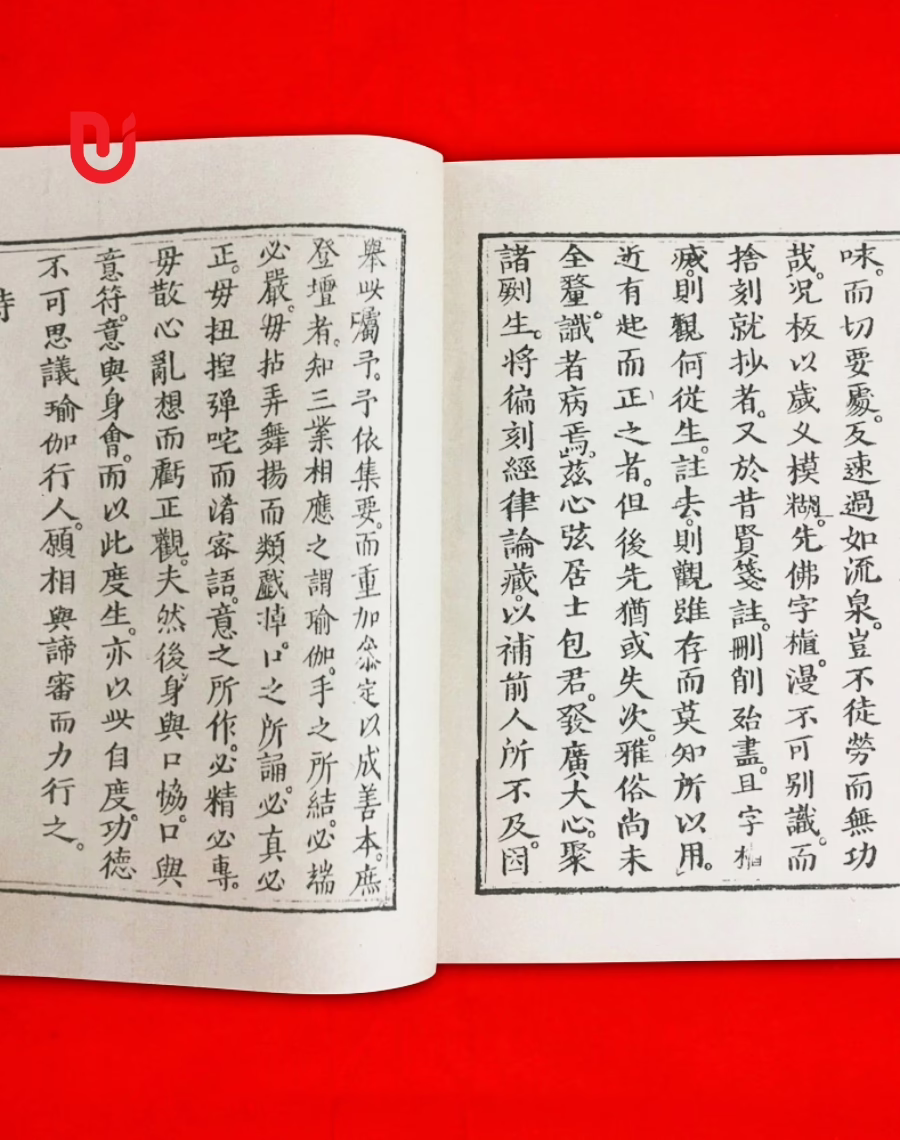 味。而切要處。反速過如流泉。豈不徒勞而無功
哉。況板以歲乆模糊。先佛字植。漫不可别識。而
捨刻就抄者。又於昔賢箋註。刪削殆盡。且字
滅。則觀何從生。註去。則觀雖存而莫知所以用。
近有起而正之者。但後先猶或失次。雅俗尚未
全釐。識者病焉。茲心弦居士包君。發廣大心。聚
諸剞生。將徧刻經律論藏。以補前人所不及。因
舉以囑予。予依集要。而重加叅定。以成善本。庶
登壇者。知三業相應之謂瑜伽。手之所結。必端
必嚴。毋拈弄舞揚而類戲掉。口之所誦。必真必
正。毋扭捏弹咤而淆密語。意之所作。必精必專。
毋散心亂想而虧正觀。夫然後身與口恊。口與
意符。意與身會。而以此度生。亦以此自度。功德
不可思議。瑜伽行人。願相與諦審而力行之。
時